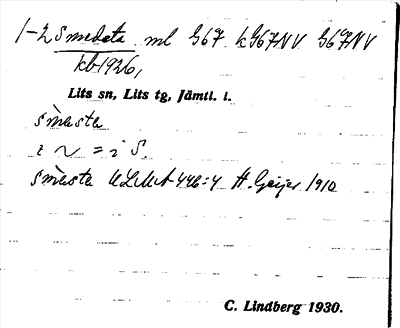 1-2 Smedsta ml 967 k967NV 967NV
kb 1926,
Lits sn, Lits tg, Jämtl. l.
smèsta
i ~ = i S.
smèsta ULMA 446:4 H. Geijer 1910
C. Lindberg 1930.